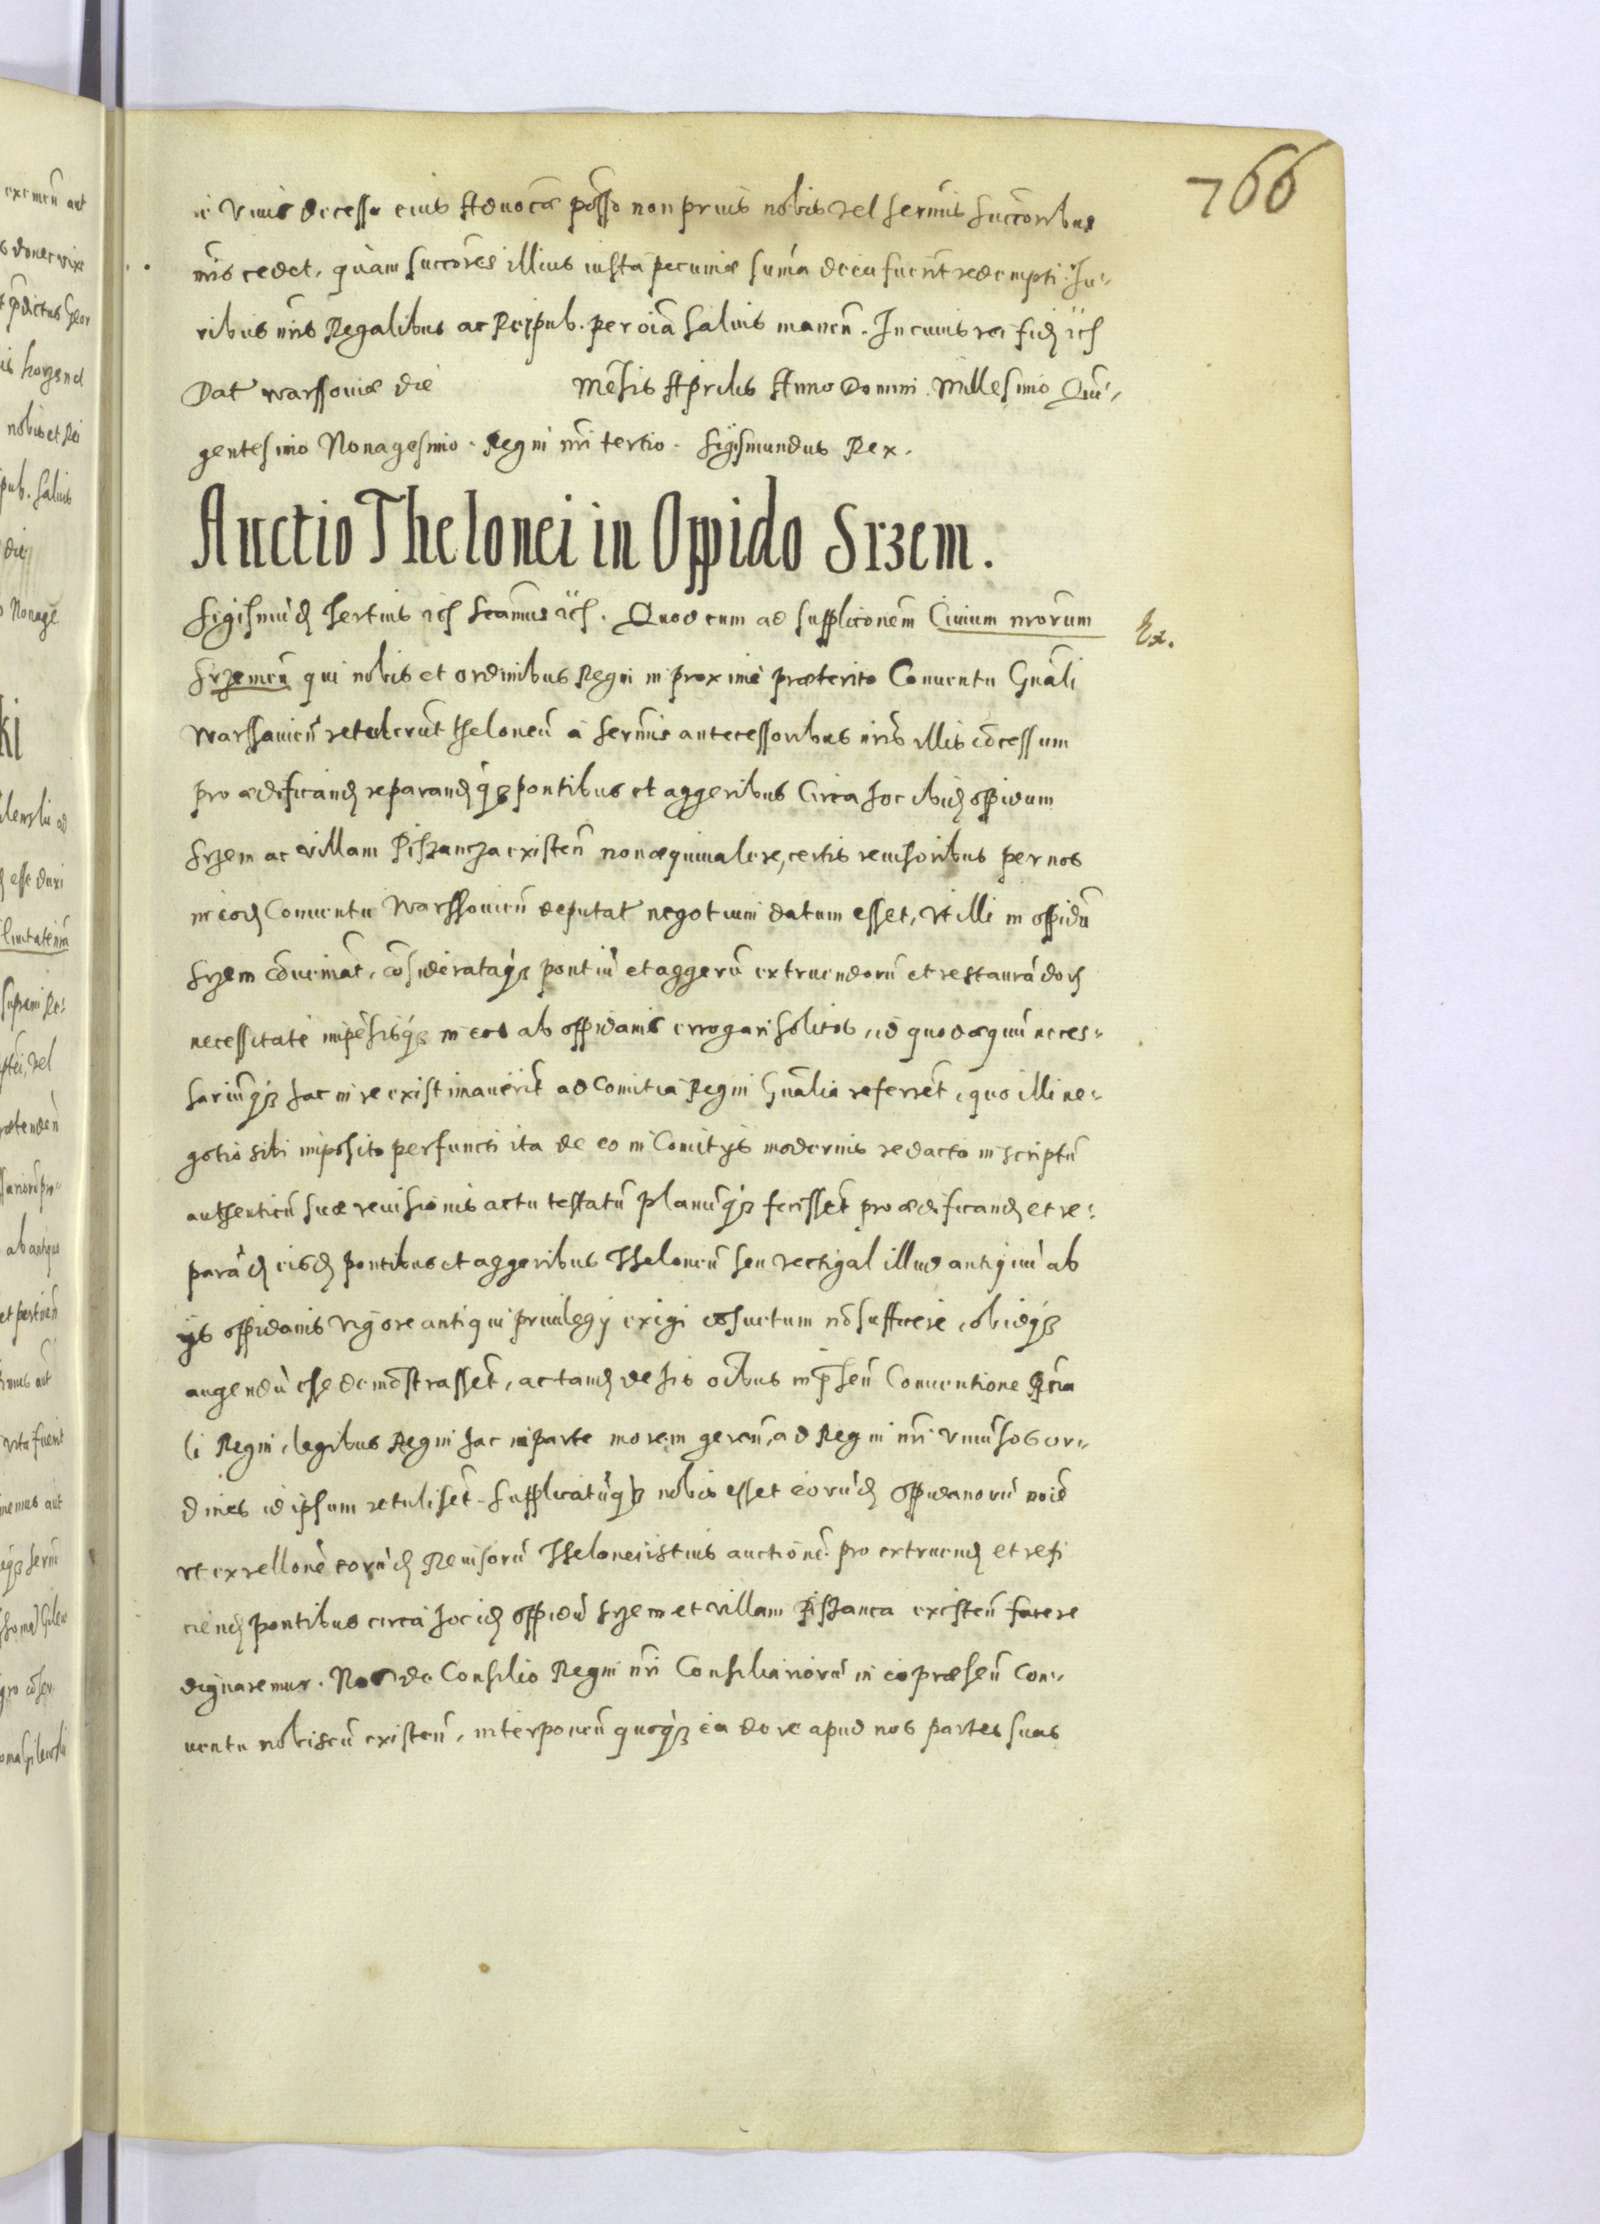 766
è viuis decessu eius Aduocatae posso non prius nobis vel sermis succoribus
nris cedet, quàm succores illius iusta pecuniae suma de ea fuerit redempti. Iu-
ribus nris Regalibus ac Reipub. per oia saluis manen. In cuius rei fid etc
Dat Warssouiae die mesis Aprilis Anno Domini Millesimo Quin-
gentesimo Nonagesimo. Regni nri tertio. Sigismundus Rex.
Auctio Thelonei in Oppido Srzem.
Sigismud Tertius etc scamus etc. Quod cum ad supplicconem Ciuium nrorum
Ex.
Srzemen qui nobis et ordinibus Regni in proximè praeterito Conuentu Gnali
Warssauien retulerut theloneu à sermis antecessoribus nris illis cocessum
pro aedificand reparandq3 pontibus et aggeribus circa hoc ibid oppidum
Srzem ac villam Piszancza existen non aequiualere, certis reuisoribus per nos
in eod Conuentu Warssouien deputat negotium datum esset, vt illi in oppidu
Srzem coueniat, cosiderataq3 pontiu et aggeru extruendoru et restaurador
necessitate impesisq3 in eos ab oppidanis errogari solitos, id quod aequu neces-
sariuq3 hac in re existimauerit ad Comitia Regni Gnalia referret, quo illi ne-
gotio sibi imposito perfuncti ita de eo in Comitijs modernis redacto in scriptu
authenticu suae reuisionis actu testatu planuq3 fecisset pro aedificand et re-
parad eisd pontibus et aggeribus Theloneu seu vectigal illud antiquu ab
ijs oppidanis vigore antiqui priuilegij exigi cosuetum no sufficere, ob idq3
augendu esse demostrasset, ac tand de his oibus in psen Conuentione Gna
li Regni, legibus Regni hac in parte morem geren, ad Regni nri vniusos or-
dines id ipsum retuliset. Supplicatuq3 nobis esset eorud oppidanoru noie
vt ex rellone eorud Reuisoru Thelonei istius auctione pro extruend et refi
ciend pontibus circa hoc id oppidu Srzem et villam Piszanca existen facere
dignaremur. Nos de Consilio Regni nri Consiliarioru in eo praesen Con-
uentu nobiscu existen, interponen quoq3 ea de re apud nos partes suas